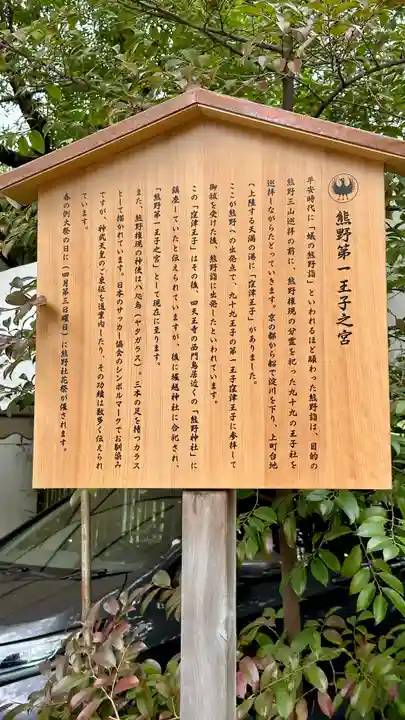 熊野第一王子之宮
平安時代に「蟻の熊野詣」といわれるほど賑わった熊野詣は、目的の
熊野三山巡拝の前に、熊野権現の分霊を祀った九十九の王子社を
巡拝しながらたどっていきます。京の都から船で淀川を下り、上町台地
へ上陸する天満の港に「窪津王子」がありました。
ここが熊野への出発点で、九十九王子の第一王子窪津王子に参拝して
御祓を受けた後、熊野詣に出発したといわれています。
この「窪津王子」はその後、四天王寺の西門鳥居近くの「熊野神社」に
鎮座していたと伝えられていますが、後に堀越神社に合祀され、
「熊野第一王子之宮」として現在に至ります。
また、熊野権現の神使は八咫烏(ヤタガラス)。三本の足を持つカラス
として描かれています。日本のサッカー協会のシンボルマークでお馴染み
ですが、神武天皇のご東征を道案内したり、その功績は数多く伝えられ
ています。
春の例大祭の日に(四月第三日曜日)に熊野社花祭が催されます。